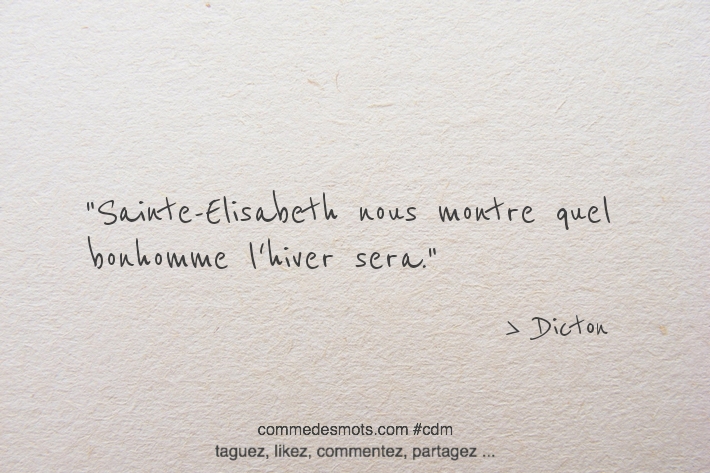 "Sainte-Elisabeth nous montre quel
bonhomme l'hiver sera."
> Dicton
commedesmots.com #cdm
taguez, likez, commentez, partagez ...